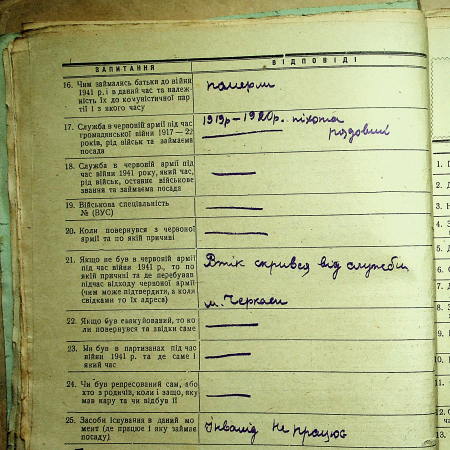 ЗАПИТАННЯ
ВІДПОВІДІ
16. Чим займались батьки до війни
1941 р. і в даний час та належ-
ність їх до комуністичної пар-
тії і з якого часу
померли
17. Служба в червоній армії під час
громадянської війни 1917 — 22
років, рід військ та займаєма
посада
1919р – 1920р. піхота
рядовий
18. Служба в червоній армії під
час війни 1941 року, який час,
рід військ, останнє військове
звання та займаєма посада
—
19. Військова спеціальність
№ (ВУС)
—
20. Коли повернувся з червоної
армії та по якій причині
—
21. Якщо не був в червоній армії
під час війни 1941 р., то по
якій причині та де перебував
підчас відходу червоної армії
(чим може підтвердити, а коли
свідками то їх адреса)
Втік скрився від служби
м. Черкаси
22. Якщо був евакуйований, то ко-
ли повернувся та звідки саме
—
23. Чи був в партизанах під час
війни 1941 р. та де саме і
який час
—
24. Чи був репресований сам, або
хто з родичів, коли і защо, яку
мав кару та чи відбув її
—
25. Засоби існування в даний мо-
мент (де працює і яку займає
посаду).
Інвалід Не працює